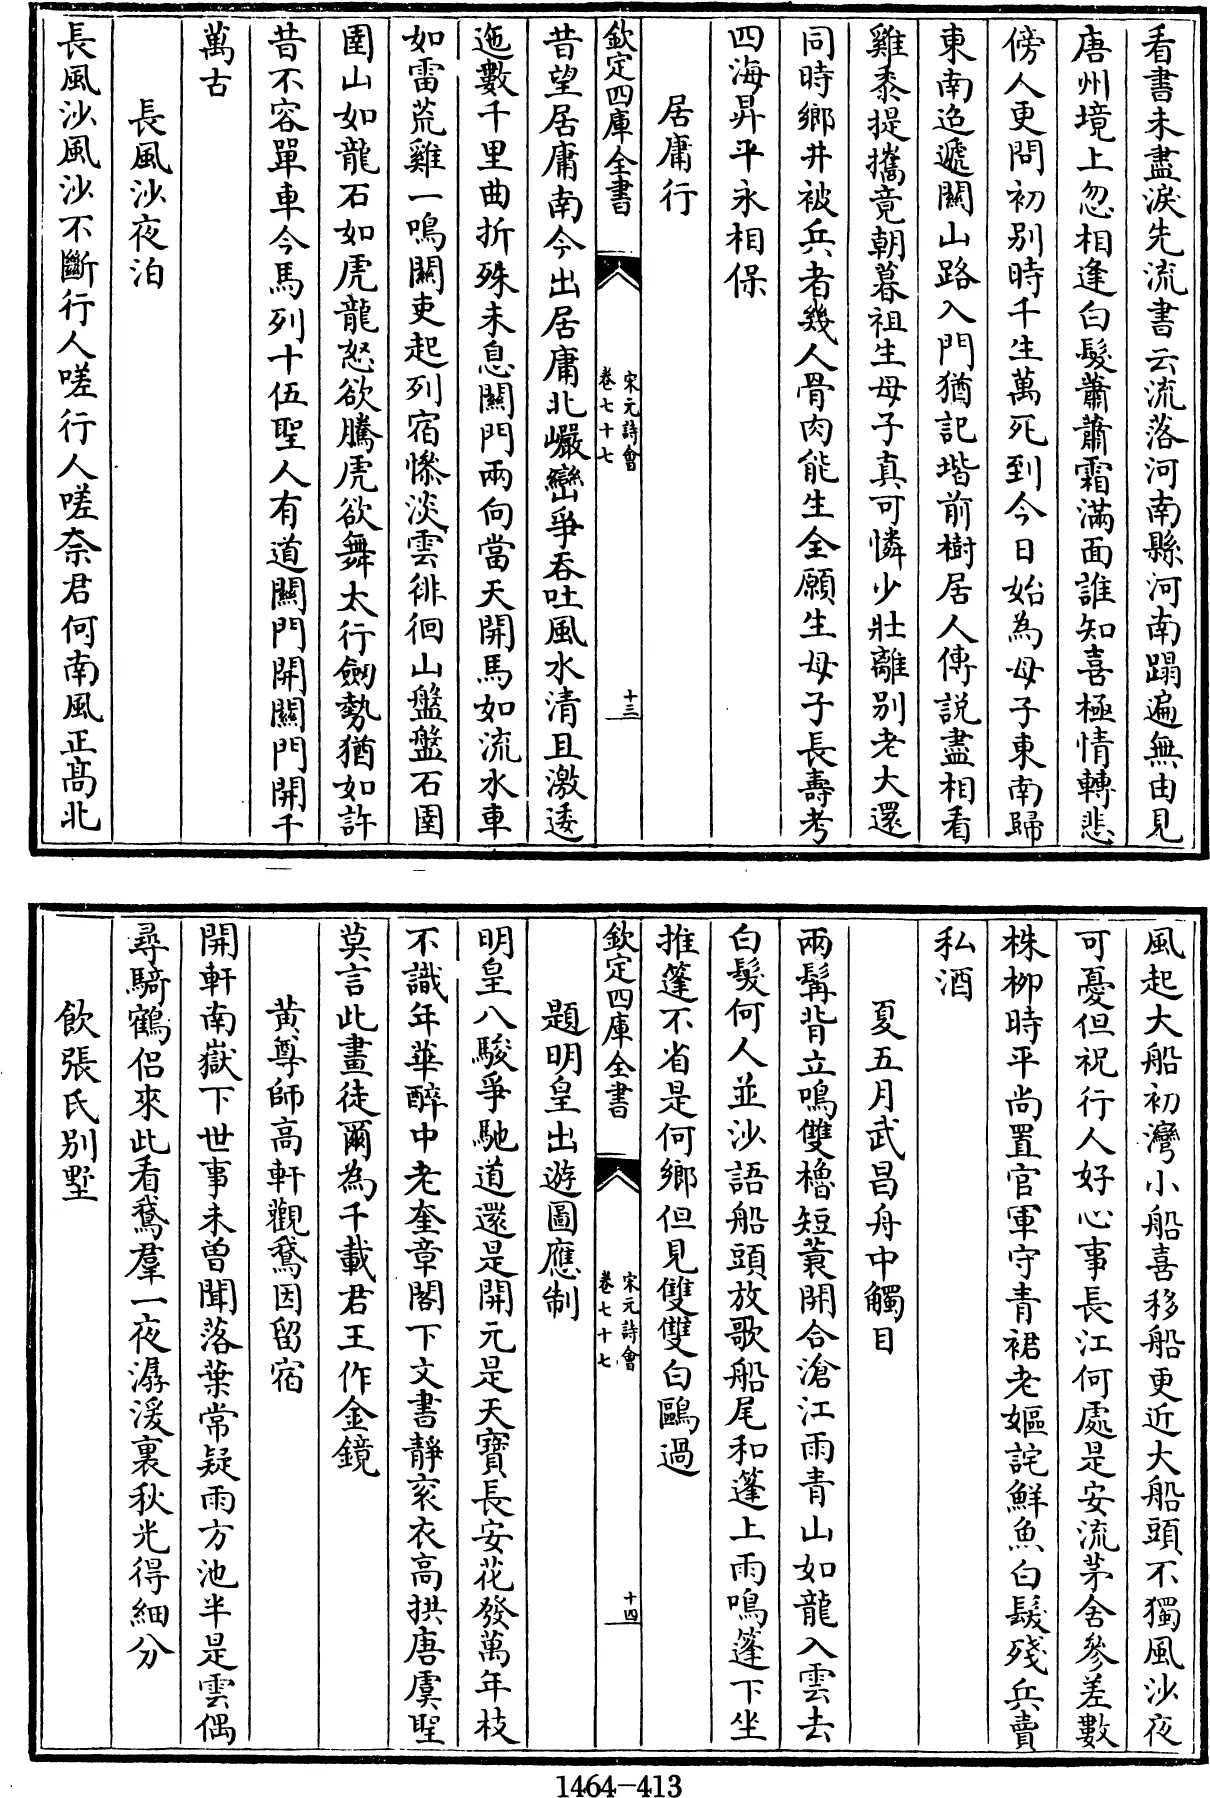 看書未盡淚先流書云流落河南縣河南蹋遍無由見
唐州境上忽相逢白髮蕭蕭霜滿面誰知喜極情轉悲
傍人更問初别時千生萬死到今日始為母子東南歸
東南迢遞關山路入門猶記堦前樹居人傳說盡相看
雞黍提攜竟朝暮祖生母子真可憐少壯離别老大還
同時鄉井被兵者幾人骨肉能生全願生母子長壽考
四海昇平永相保
居庸行
欽定四庫全書
宋元詩會
卷七十七
十三
昔望居庸南今出居庸北巗巒爭吞吐風水清且激逶
迤數千里曲折殊未息關門兩向當天開馬如流水車
如雷荒雞一鳴關吏起列宿慘淡雲徘徊山盤盤石圍
圍山如龍石如虎龍怒欲騰虎欲舞太行劒勢猶如許
昔不容單車今馬列十伍聖人有道關門開關門開千
萬古
長風沙夜泊
長風沙風沙不斷行人嗟行人嗟奈君何南風正高北
風起大船初灣小船喜移船更近大船頭不獨風沙夜
可憂但祝行人好心事長江何處是安流茅舍參差數
株柳時平尚置官軍守青裙老嫗詫鮮魚白髮殘兵賣
私酒
夏五月武昌舟中觸目
兩髯背立鳴雙櫓短蓑開合滄江雨青山如龍入雲去
白髮何人並沙語船頭放歌船尾和篷上雨鳴篷下坐
推篷不省是何鄉但見雙雙白鷗過
欽定四庫全書
宋元詩會
卷七十七
十四
題明皇出遊圖應制
明皇八駿爭馳道還是開元是天寶長安花發萬年枝
不識年華醉中老奎章閣下文書靜衮衣高拱唐虞聖
莫言此畫徒爾為千載君王作金鏡
黄尊師高軒觀鵞因留宿
開軒南嶽下世事未曽聞落葉常疑雨方池半是雲偶
尋騎鶴侣來此看鵞羣一夜潺湲裏秋光得細分
飲張氏别墅
1464-413